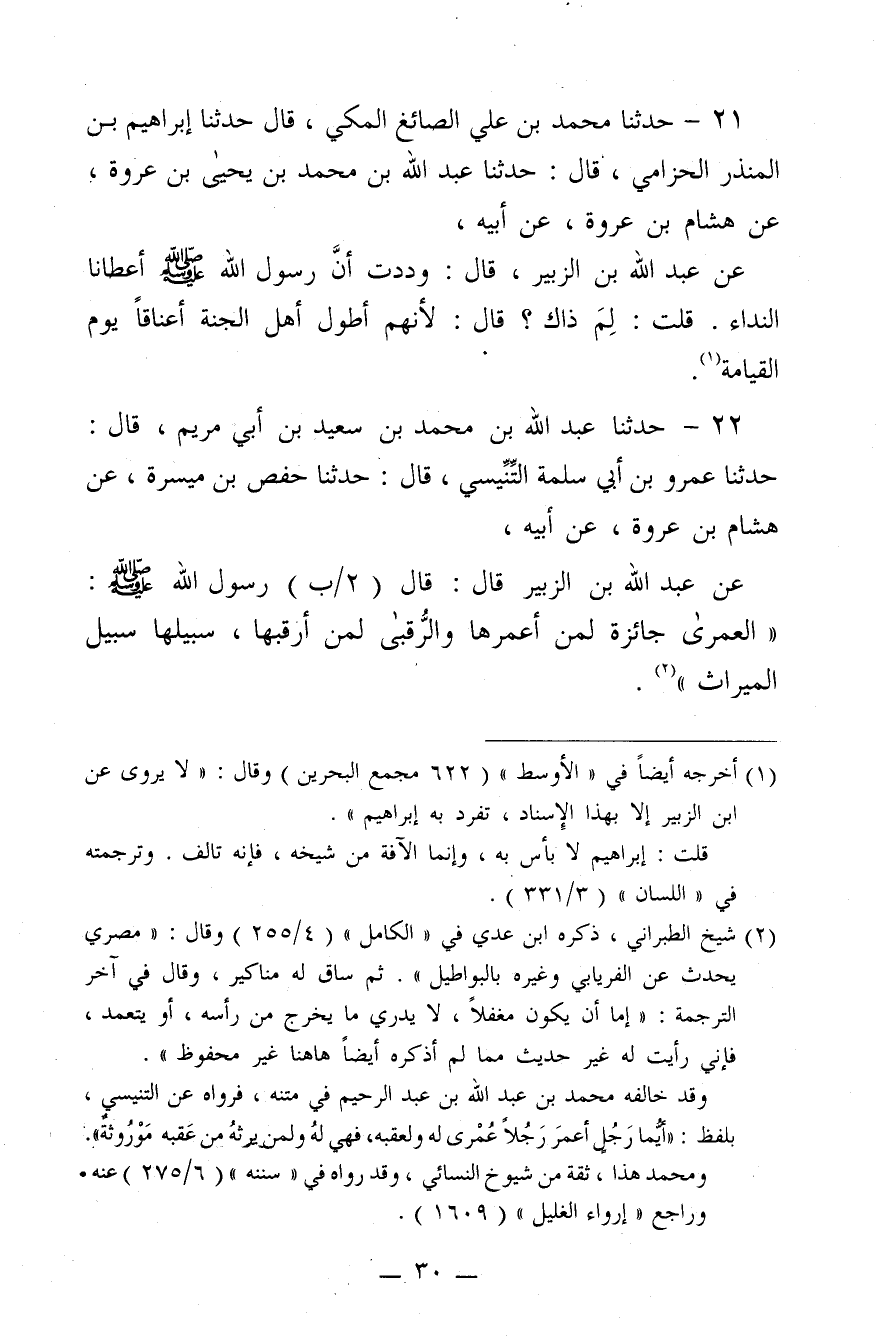 ٢١ - حدثنا محمد بن علي الصائغ المكي ، قال حدثنا إبراهيم بـن
المنذر الحزامي ، قال : حدثنا عبد الله بن محمد بن يحيىٰ بن عروة ،
عن هشام بن عروة ، عن أبيه ،
عن عبد الله بن الزبير ، قال : وددت أنَّ رسول الله ﷺ أعطانا
النداء . قلت : لِمَ ذاك ؟ قال : لأنهم أطول أهل الجنة أعناقاً يوم
القيامة(١).
٢٢ - حدثنا عبد الله بن محمد بن سعيد بن أبي مريم ، قال :
حدثنا عمرو بن أبي سلمة التِّنِّيسي ، قال : حدثنا حفص بن ميسرة ، عن
هشام بن عروة ، عن أبيه ،
عن عبد الله بن الزبير قال : قال ( ٢/ب ) رسول الله ﷺ :
« العمرىٰ جائزة لمن أعمرها والرُّقبىٰ لمن أرقبها ، سبيلها سبيل
الميراث »(٢) .
(١) أخرجه أيضاً في « الأوسط » ( ٦٢٢ مجمع البحرين ) وقال : « لا يروى عن
ابن الزبير إلا بهذا الإسناد ، تفرد به إبراهيم » .
قلت : إبراهيم لا بأس به ، وإنما الآفة من شيخه ، فإنه تالف . وترجمته
في « اللسان » ( ٣٣١/٣ ) .
(٢) شيخ الطبراني ، ذكره ابن عدي في « الكامل » ( ٢٥٥/٤ ) وقال : « مصري
يحدث عن الفريابي وغيره بالبواطيل » . ثم ساق له مناكير ، وقال في آخر
الترجمة : « إما أن يكون مغفلاً ، لا يدري ما يخرج من رأسه ، أو يتعمد ،
فإني رأيت له غير حديث مما لم أذكره أيضاً هاهنا غير محفوظ » .
وقد خالفه محمد بن عبد الله بن عبد الرحيم في متنه ، فرواه عن التنيسي ،
بلفظ : «أيُّما رَجُلٍ أعمرَ رَجُلاً عُمْرى له ولعقبه، فهي لهُ ولمن يرثهُ من عَقبه مَوْرُوثةٌ».
ومحمد هذا ، ثقة من شيوخ النسائي ، وقد رواه في « سننه » ( ٢٧٥/٦ ) عنه .
وراجع « إرواء الغليل » ( ١٦٠٩ ) .
— ٣٠ —